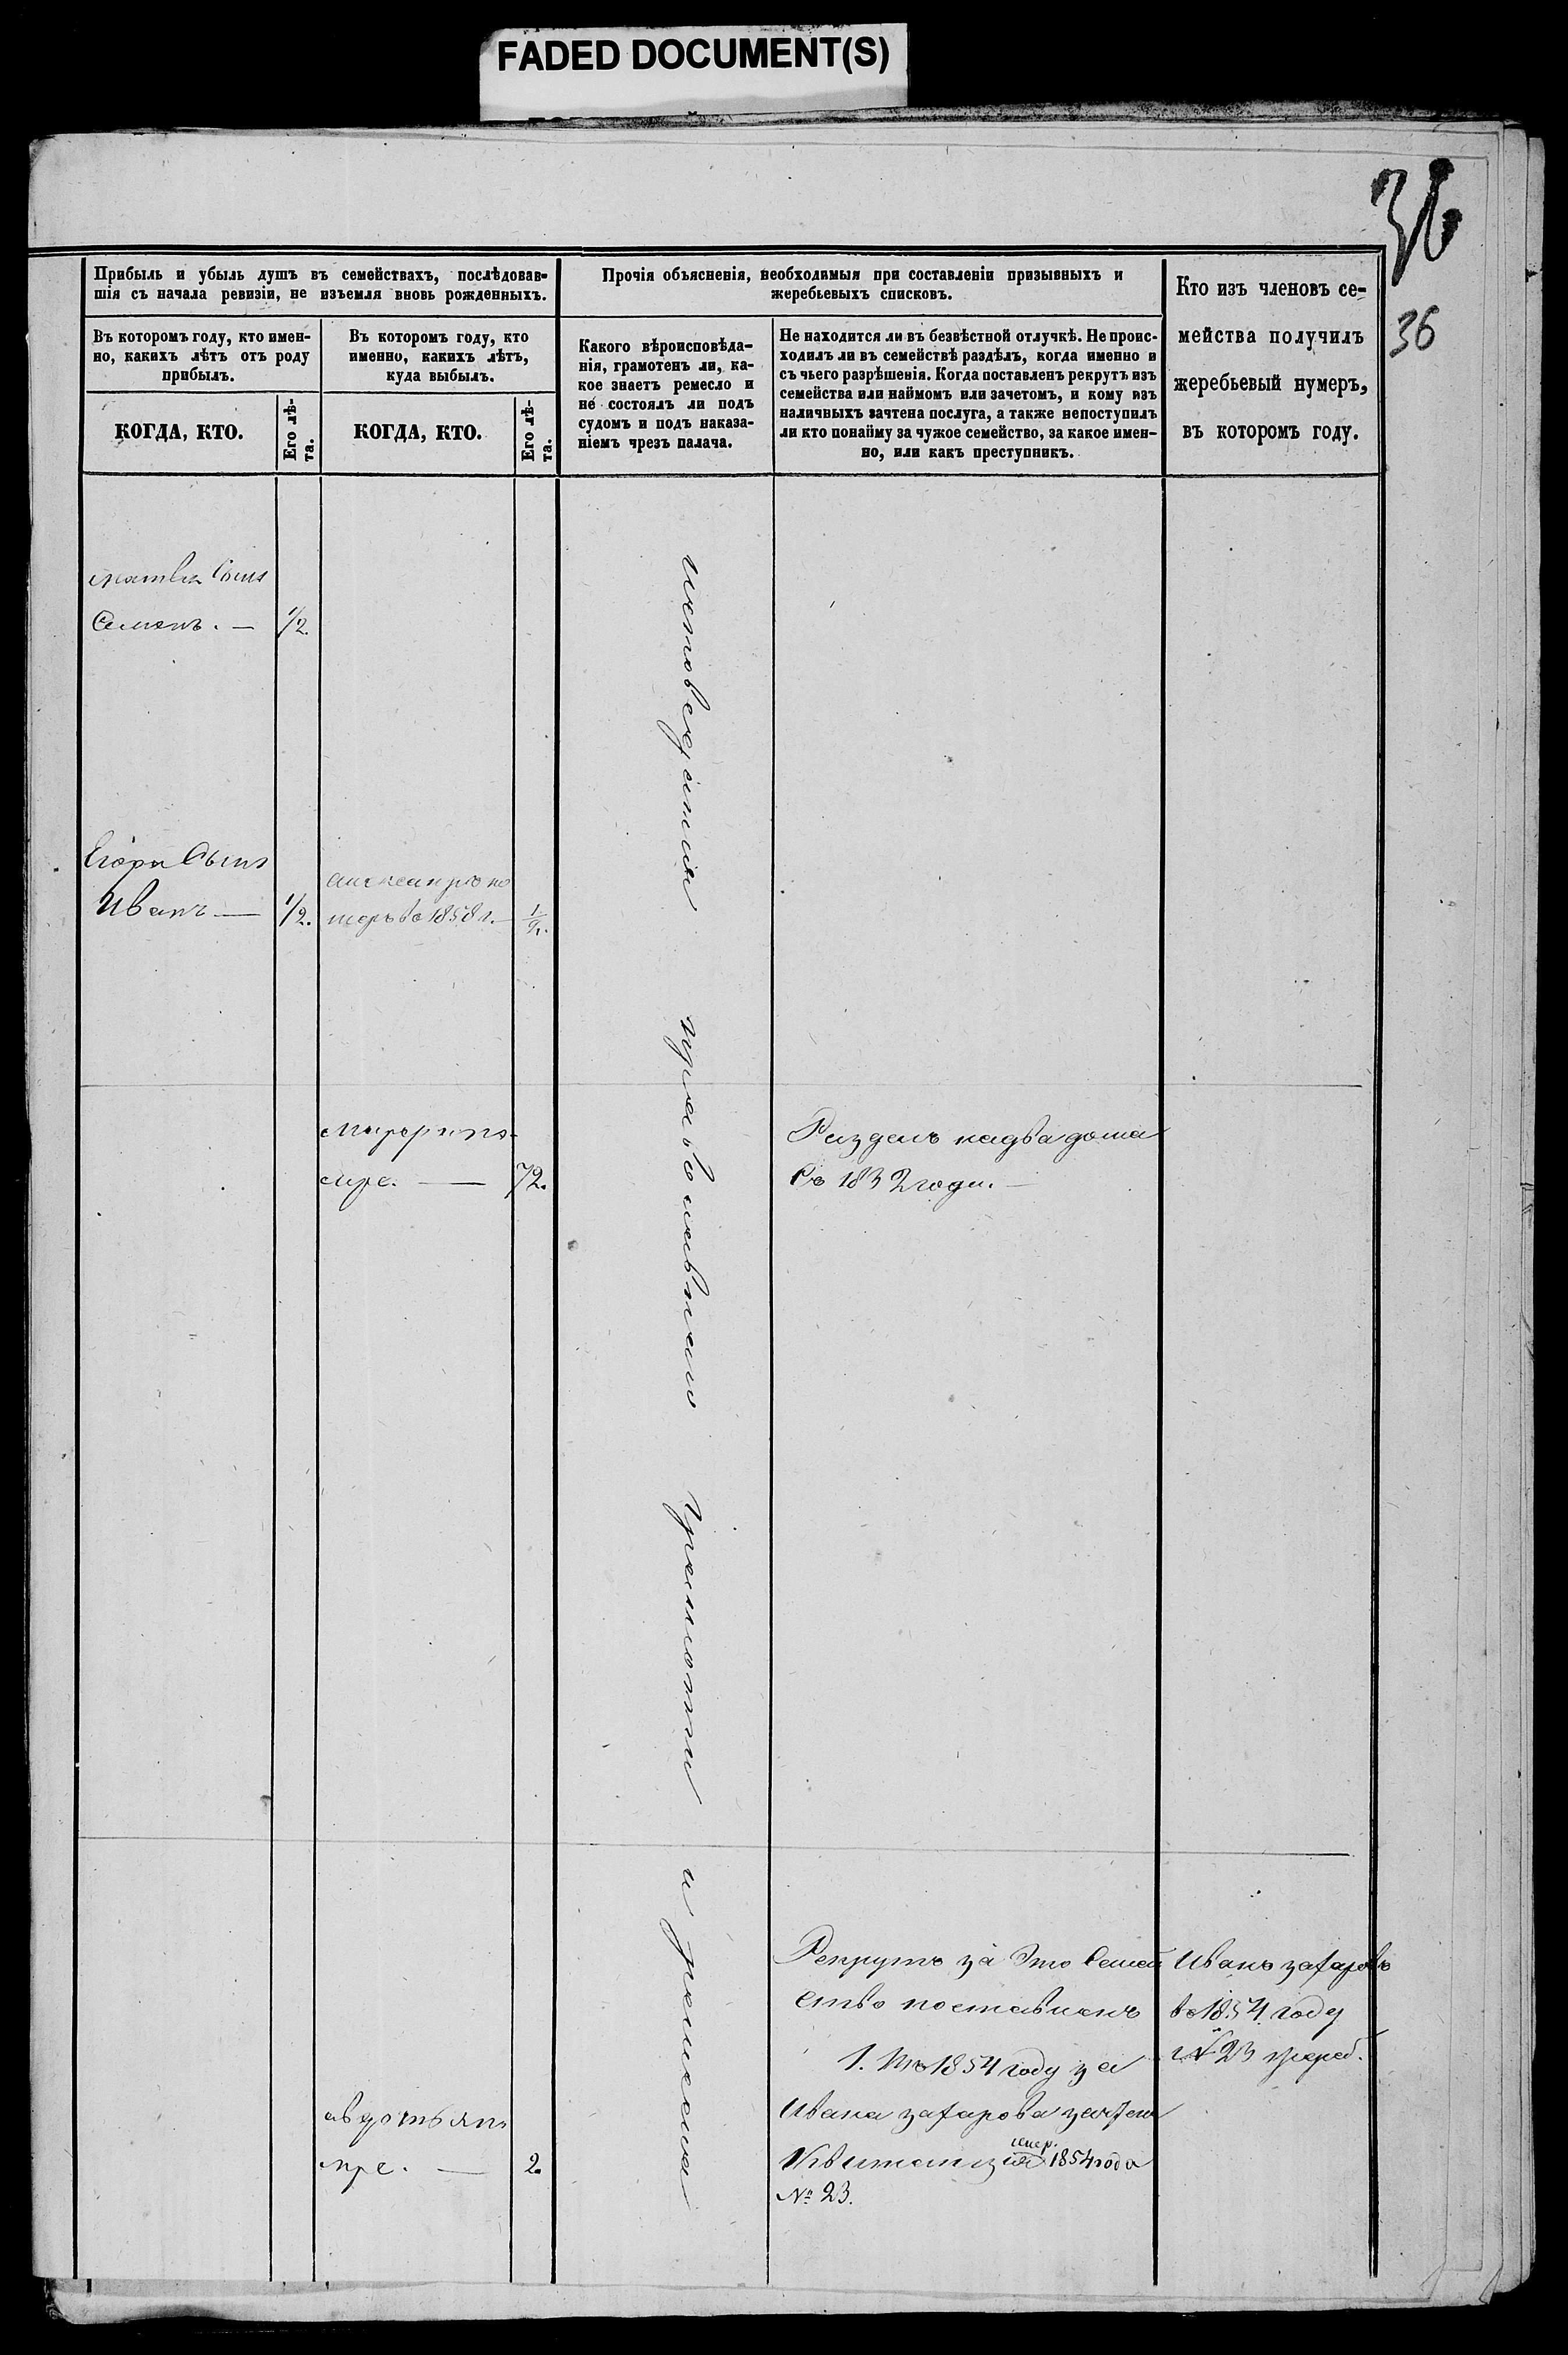 FADED DOCUMENT(S)
36
36
Прибыль и убыль душъ въ семействахъ, послѣдовав-
шія съ начала ревизіи, не изъемля вновь рожденныхъ.
Прочія объясненія, необходимыя при составленіи призывныхъ и
жеребьевыхъ списковъ.
Кто изъ членовъ се-
мейства получилъ
жеребьевый нумеръ,
въ которомъ году.
Въ которомъ году, кто имен-
но, какихъ лѣтъ отъ роду
прибылъ.
Въ которомъ году, кто
именно, какихъ лѣтъ,
куда выбылъ.
Какого вѣроисповѣда-
нія, грамотенъ ли, ка-
кое знаетъ ремесло и
не состоялъ ли подъ
судомъ и подъ наказа-
ніемъ чрезъ палача.
Не находится ли въ безвѣстной отлучкѣ. Не проис-
ходилъ ли въ семействѣ раздѣлъ, когда именно и
съ чьего разрѣшенія. Когда поставленъ рекрутъ изъ
семейства или наймомъ или зачетомъ, и кому изъ
наличныхъ зачтена послуга, а также непоступилъ
ли кто понайму за чужое семейство, за какое имен-
но, или какъ преступникъ.
КОГДА, КТО.
Его лѣ-
та.
КОГДА, КТО.
Его лѣ-
та.
матвея Сынъ
Семенъ. — 1/2.
Егора Сынъ
Иванъ — 1/2.
александръ по
меръ в 1858 г. — 1/2.
по-
мре. — 72.
Разделъ на два дома
Съ 1832 года. —
православнаго грамоты и ремесла
Рекрутъ за Это Семей
ство поставленъ
1. въ 1854 году за
Ивана захарова зачтен
Квитанция 1854 года
№ 23.
Иванъ захаровъ
въ 1854 году
№ 23 жереб.
мре. — 2.